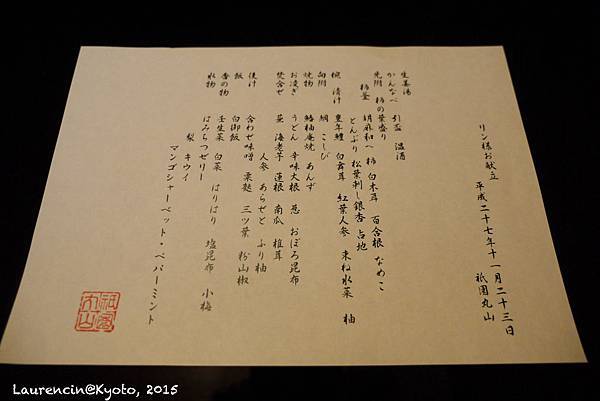 リン様お献立
平成二十七年十一月二十三日
祇園丸山
生姜湯
かんなべ 引盃 温酒
先附 柿の葉盛り
柿釜 胡麻和へ 柿 白木耳 百合根 なめこ
とんぶり 松葉刺し銀杏 占地
椀 清汁 重年鯉 白舞茸 紅葉人参 束ね水菜 柚
向附 鯛 こしび
焼物 鰆柚庵焼 あんず
お凌ぎ うどん 辛味大根 葱 おぼろ昆布
焚合せ 蕪 海老芋 蓮根 南瓜 椎茸
人参 あらぜと ふり柚
後汁 合わせ味噌 粟麩 三ツ葉 粉山椒
飯 白御飯
香の物 壬生菜 白菜 はりはり 塩昆布 小梅
水物 はみちつゼリー
梨 キウイ
マンゴシャーベット・ペパーミント
祇園丸山
Laurencin@Kyoto, 2015